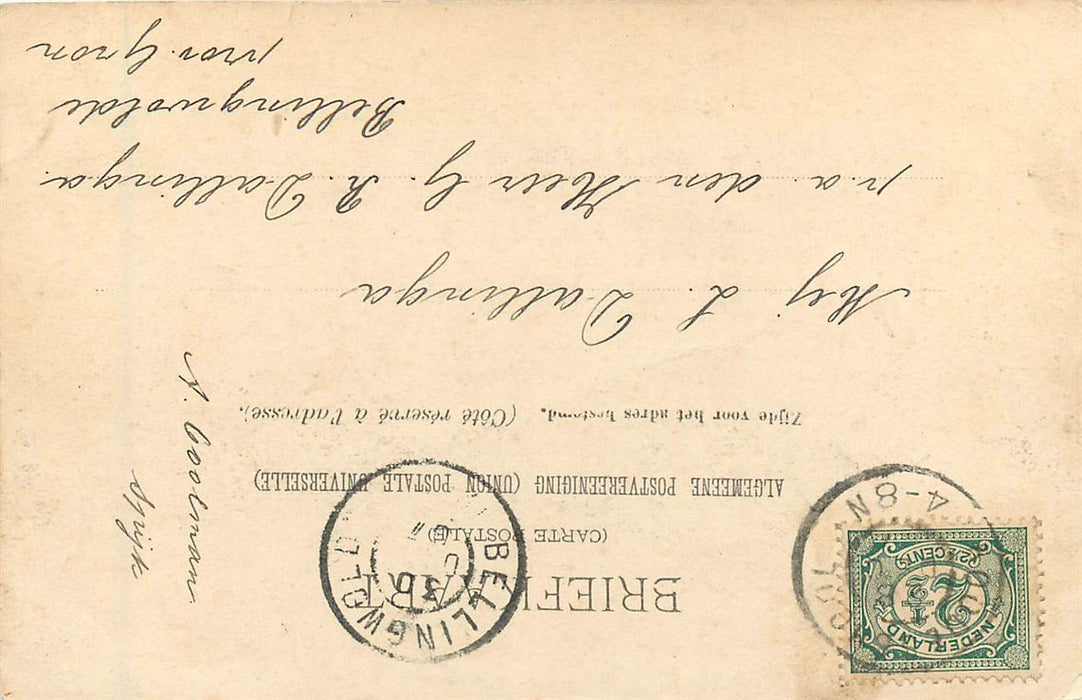 BRIEFKAART
(CARTE POSTALE)
ALGEMEENE POSTVEREENIGING (UNION POSTALE UNIVERSELLE)
Zijde voor het adres bestemd. (Côté réservé à l'adresse).
Mej L. Dallinga
p.a. den Heer G. R. Dallinga
Bellingwolde
prov. Gron
A. Coolman
Spijk
NEDERLAND
2½
2½ CENT
BELLINGWOLD
4-8N